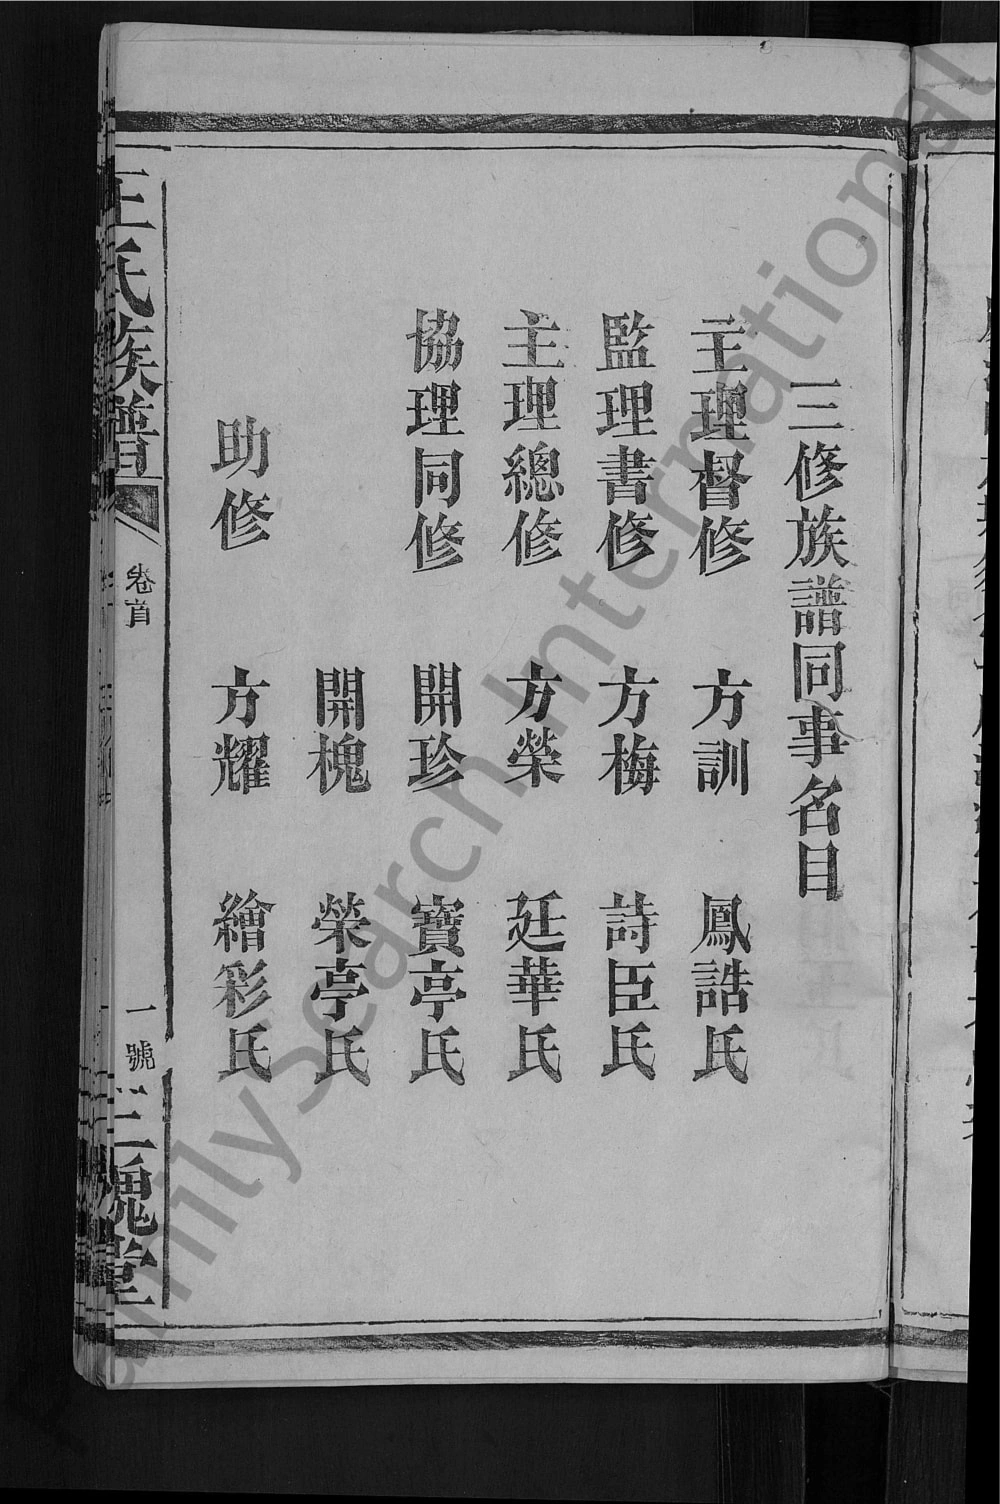 三修族譜同事名目
主理督修 方訓 鳳誥氏
監理書修 方梅 詩臣氏
主理總修 方榮 廷華氏
協理同修 開珍 寶亭氏
開槐 榮亭氏
助修 方耀 繪彩氏
王氏族譜 卷首 一號 三槐堂
FamilySearch International